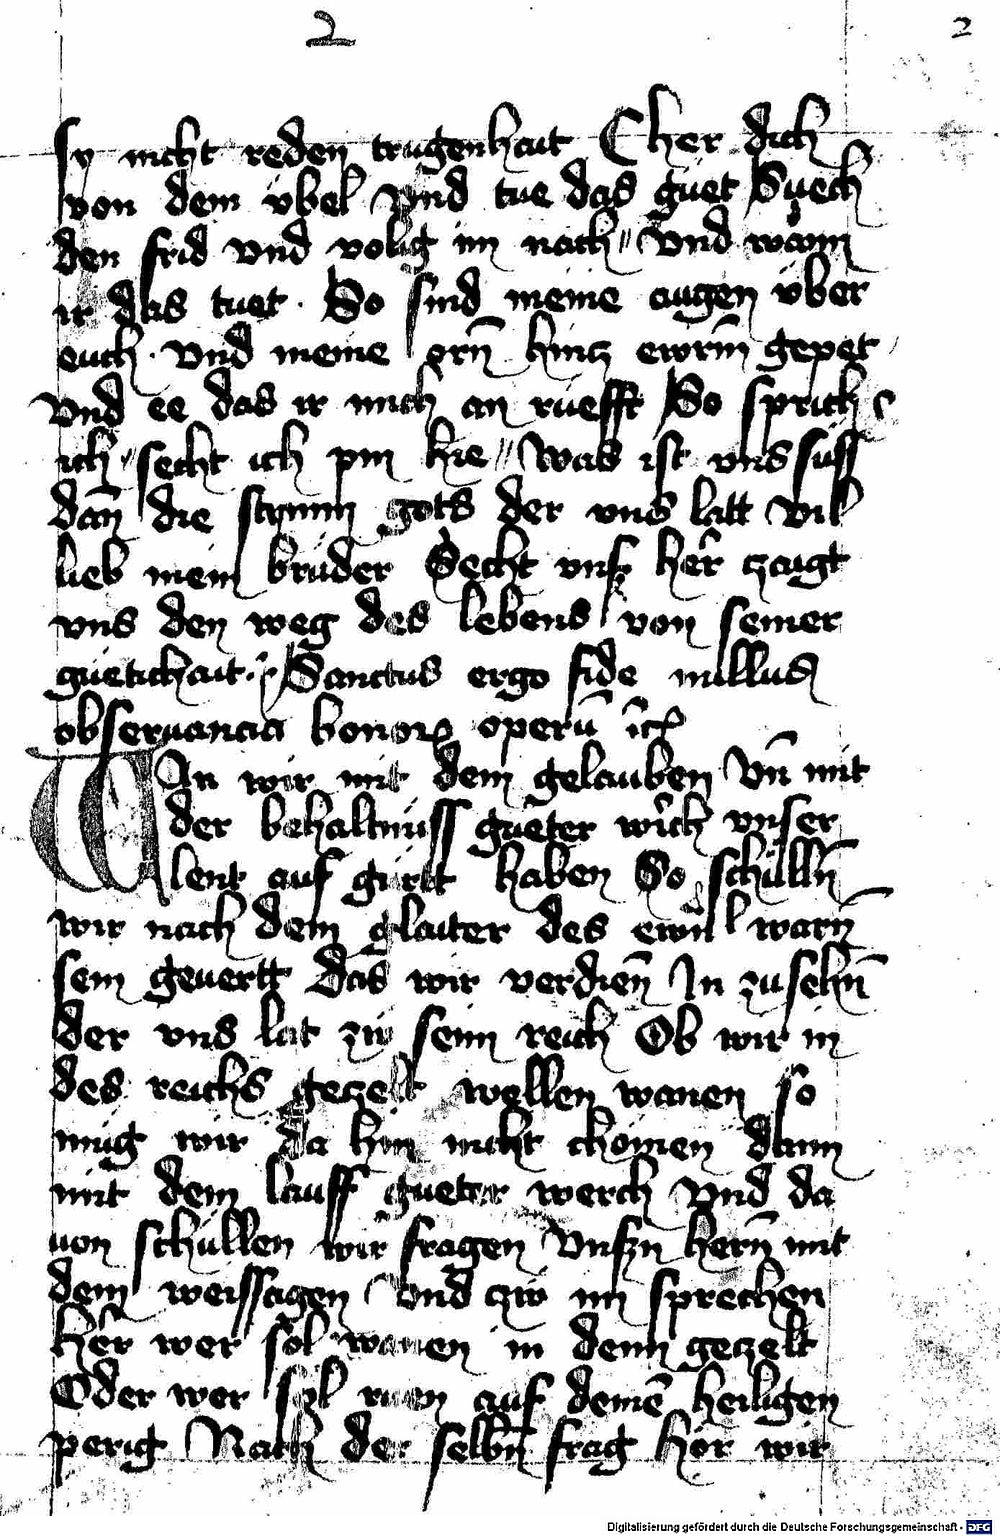 2 2
sy nicht reden trugenhait Cher dich
von dem vbel vnd tue das guet Suech
den frid vnd volig im nach vnd wann
ir das tuet. So sind meine augen vber
euch. vnd meine orn̄ hincz ewrm̄ gepet
vnd ee das ir mich an ruefft So sprich
ich secht ich pin hie Was ist vns süss
dan̄ die stymm gots der vns latt vil
lieb mein brüder Secht vnser her̄ zaigt
vns den weg des lebens von seiner
guetichait. Sanctus ergo fide
obseruancia bonor operū
Wan wir mit dem gelauben vn̄ mit
der behaltnüss gueter werch vnser
lent auf gurtt haben So schülln̄
wir nach dem glaiter des ewn̄l warn̄
sein geuertt das wir verdien̄ In zu sehn̄
der vns lat zw seim reich Ob wir in
des reichs gezelt wellen wanen so
mug wir da hin nicht chomen dann
mit dem lauff gueter werch vnd da
uon schüllen wir fragen vnsern hern̄ mit
dem weissagen vnd zw im sprechen
Her wer sol wanen in deim gezelt
Oder wer sol ruen auf deinē heiligen
perig Nach der selbn̄ frag hör wir
Digitalisierung gefördert durch die Deutsche Forschungsgemeinschaft - DFG